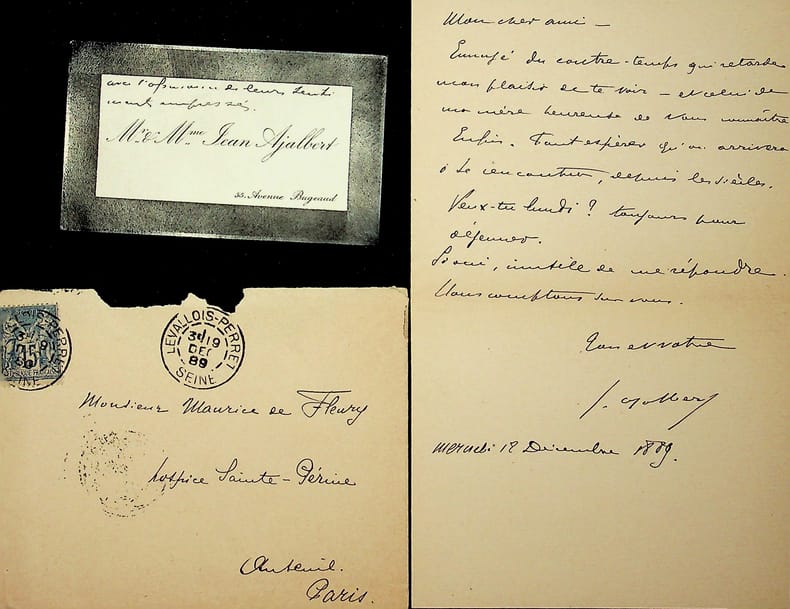 avec l'expression de leurs senti
ments empressés.
Mr. & Mme Jean Ajalbert
55. Avenue Bugeaud
LEVALLOIS-PERRET
3E 19
DEC
89
SEINE
15
Monsieur Maurice de Fleury
hospice Sainte-Périne
Auteuil.
Paris.
Mon cher ami –
Ennuyé du contre-temps qui retarde
mon plaisir de te voir – et celui de
ma mère heureuse de vous connaître
Enfin. Faut espérer qu'on arrivera
à se rencontrer, depuis les siècles.
Veux-tu lundi ? toujours pour
déjeuner.
Si oui, inutile de me répondre.
Nous comptons sur vous.
Tien et votre
J. Ajalbert
mercredi 18 Décembre 1889.